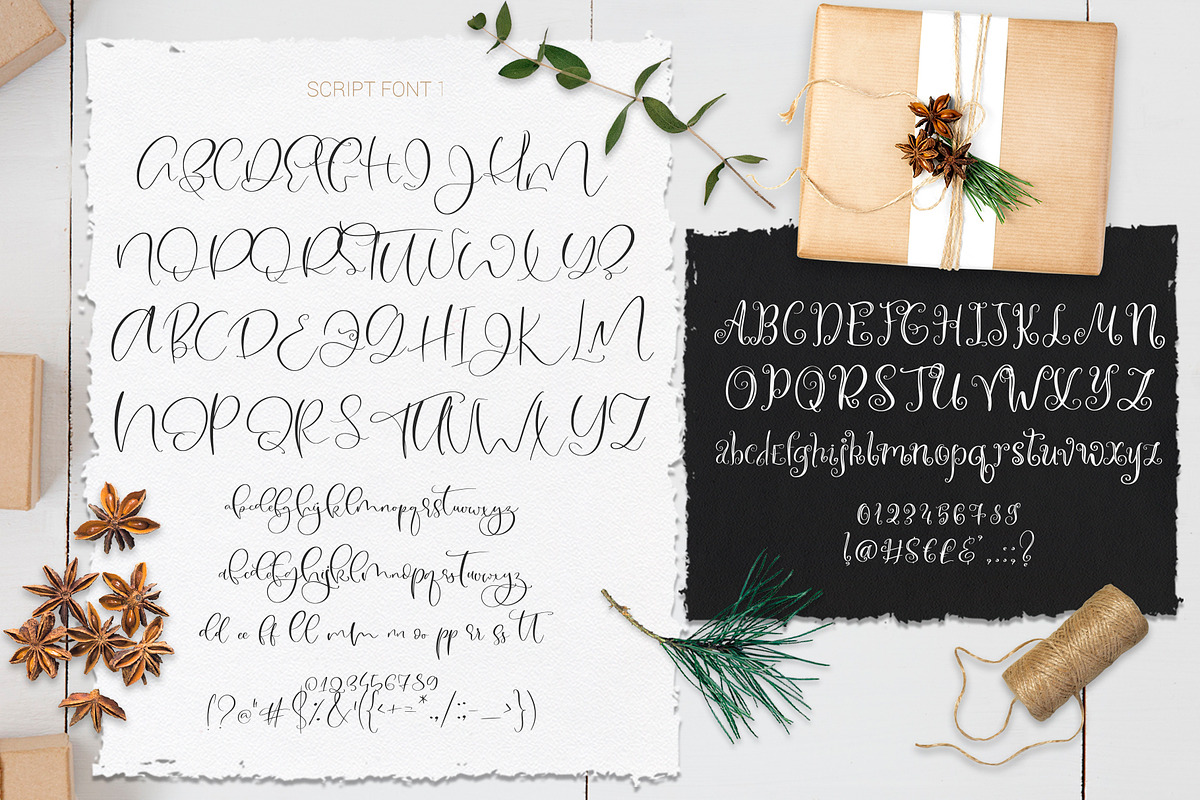 SCRIPT FONT 1
ABCDEFGHIJKLM
NOPQRSTUVWXYZ
ABCDEFGHIJKLM
NOPQRSTUVWXYZ
abcdefghijklmnopqrstuvwxyz
abcdefghijklmnopqrstuvwxyz
dd ee ff ll mm nn oo pp rr ss tt
0123456789
(?@"#$%&'({<+=*.,/:;-_>})
ABCDEFGHIJKLMN
OPQRSTUVWXYZ
abcdefghijklmnopqrstuvwxyz
0123456789
!@#$€£&',.:;?